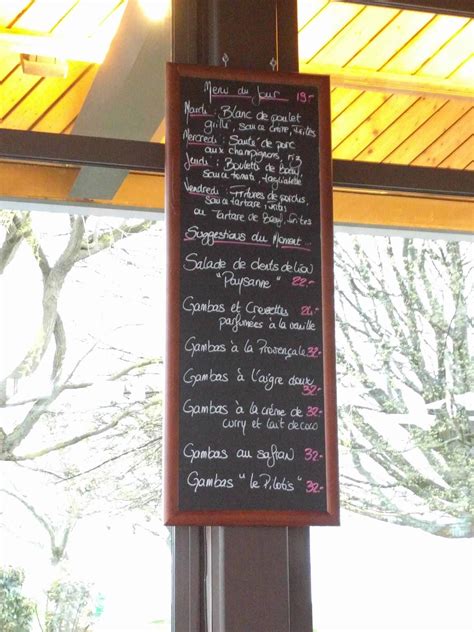 Menu du Jour 19.-
Mardi : Blanc de poulet
grillé, sauce , frites
Mercredi : Sauté de porc
aux champignons, riz
Jeudi : Boulette de boeuf,
sauce tomate, tagliatelle
Vendredi : Fritures de
sauce tartare, frites
ou Tartare de Boeuf, frites
Suggestions du Moment ...
Salade de dents de Lion
"Paysanne" 22.-
Gambas et Crevettes 26.-
parfumées à la vanille
Gambas à la Provençale 32.-
Gambas à l'aigre doux 32.-
Gambas à la crème de 32.-
curry et lait de coco
Gambas au safran 32.-
Gambas "le Pilotis" 32.-